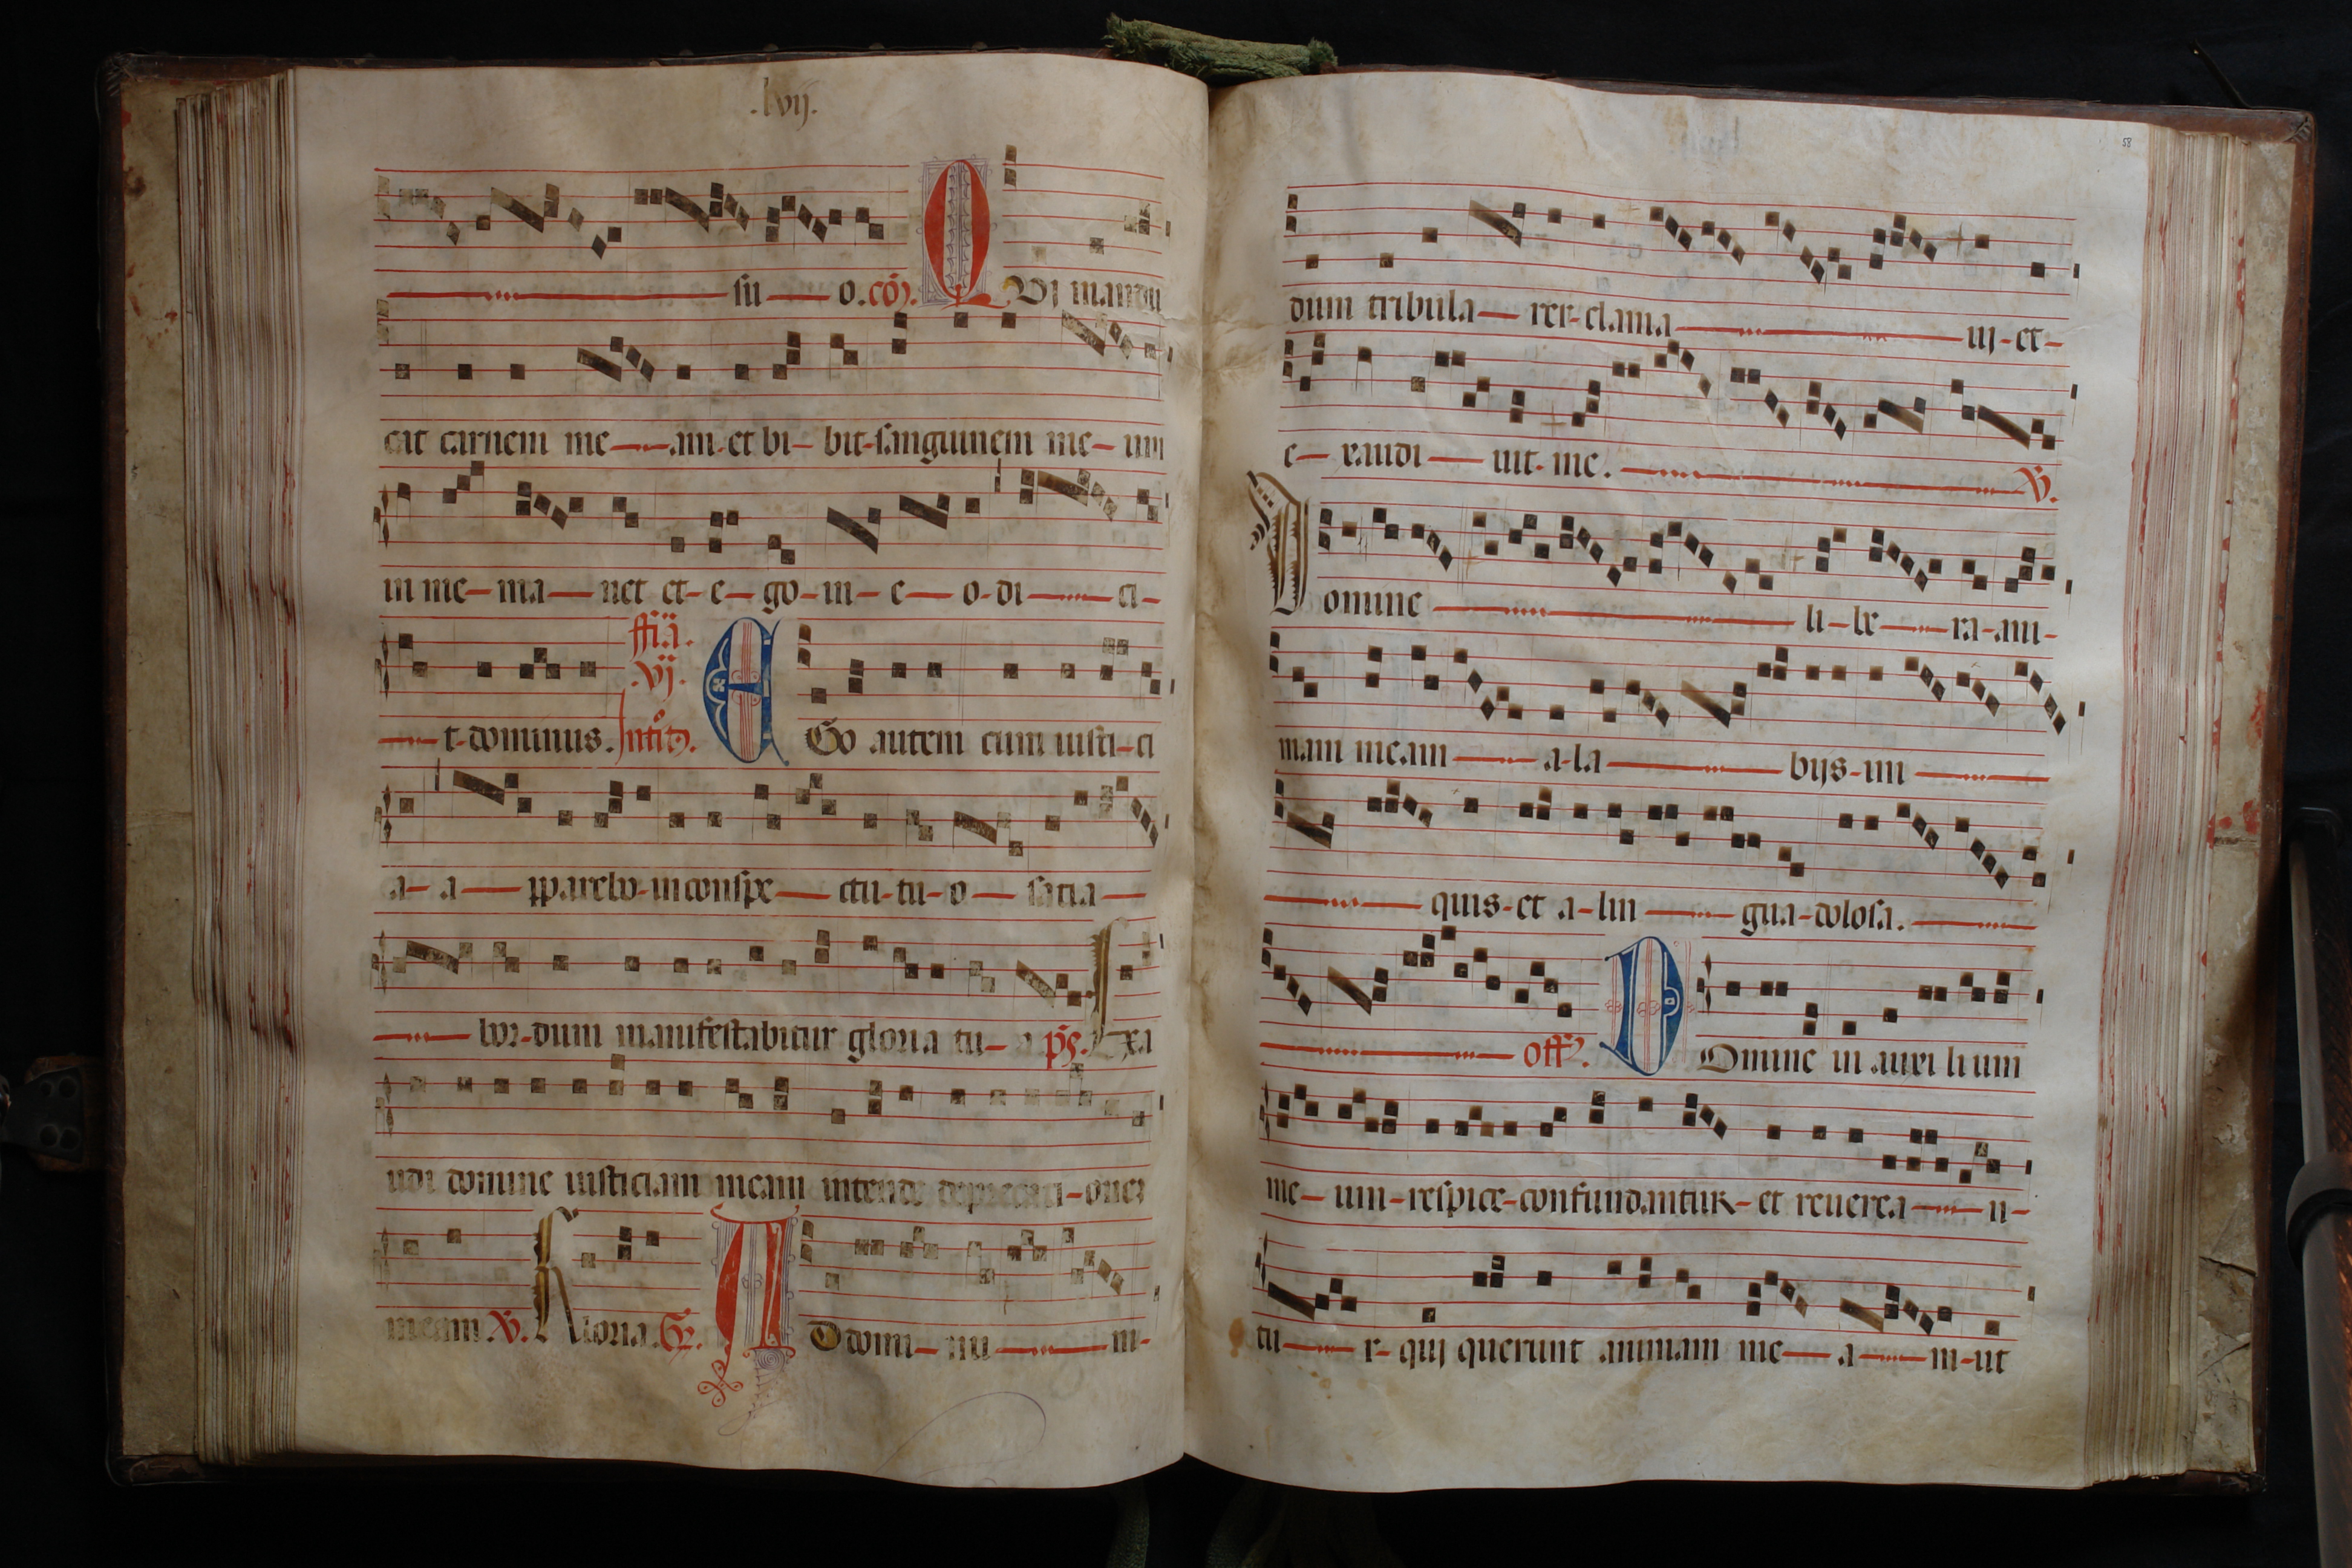 .lvij.
su o. co&#772;.
QVi mandu
cat carnem me am et bi bit sanguinem me um
in me ma net et e go in e o di ci
t dominus. ffia. vj. EGo autem cum iusti ci
a a pparebo in conspe ctu tu o facia
bor dum manifestabitur gloria tu a ps. Exa
udi domine iusticiam meam intende deprecati onez
meam V. Gloria. ADdomi nu m
58
dum tribula rer clama uj et
e xaudi uit me. V.
Domine li be ra ani
mam meam a la bijs ini
quis et a lin gua dolosa.
off. DOmine in auxi lium
me um respice confundantur et reuerea n
tu r qui querunt animam me a m ut